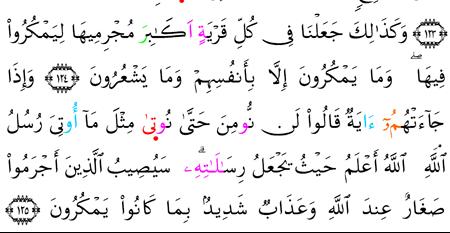 ﴿١٢٣﴾ وَكَذَٰلِكَ جَعَلْنَا فِى كُلِّ قَرْيَةٍ اَكَٰبِرَ مُجْرِمِيهَا لِيَمْكُرُواْ
فِيهَاۖ وَمَا يَمْكُرُونَ إِلَّا بِأَنفُسِهِمْ وَمَا يَشْعُرُونَ ﴿١٢٤﴾ وَإِذَا
جَآءَتْهُمُۥٓ ءَايَةٌ قَالُواْ لَن نُّومِنَ حَتَّىٰ نُوتىٰ مِثْلَ مَآ أُوتِىَ رُسُلُ
اللَّهِۘ اللَّهُ أَعْلَمُ حَيْثُ يَجْعَلُ رِسَالَٰتِهِۦۗ سَيُصِيبُ الَّذِينَ أَجْرَمُواْ
صَغَارٌ عِندَ اللَّهِ وَعَذَابٌ شَدِيدٌۢ بِمَا كَانُواْ يَمْكُرُونَ ﴿١٢٥﴾